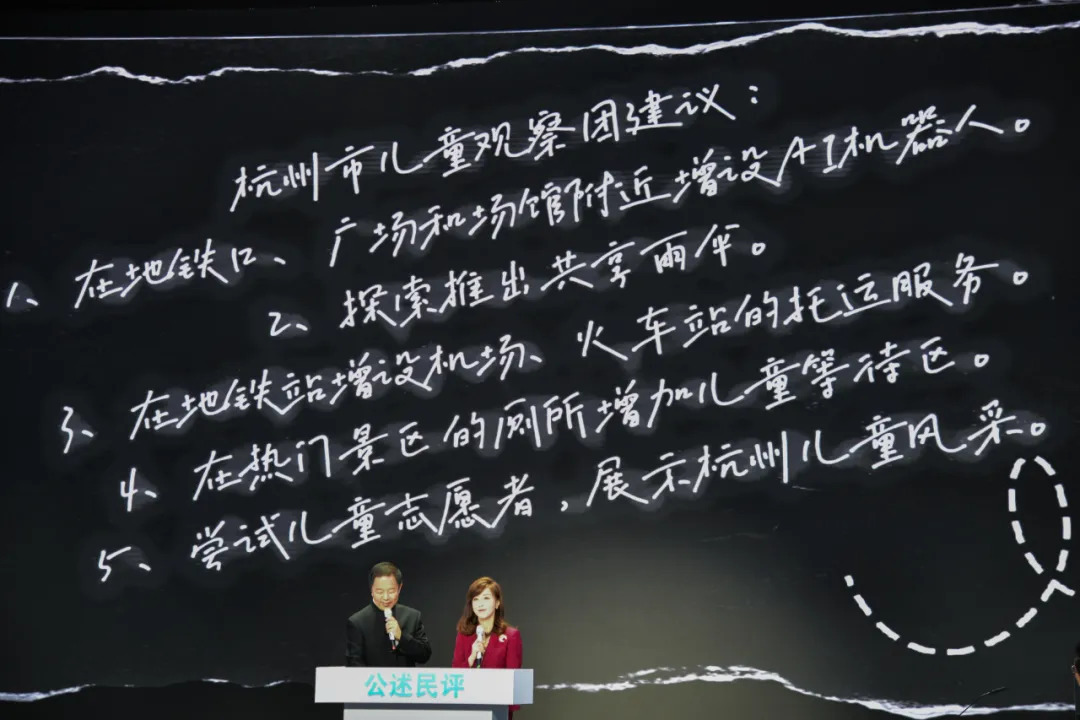 杭州市儿童观察团建议：
1、在地铁口、广场和场馆附近增设AI机器人。
2、探索推出共享雨伞。
3、在地铁站增设机场、火车站的托运服务。
4、在热门景区的厕所增加儿童等待区。
5、尝试儿童志愿者，展示杭州儿童风采。
公述民评